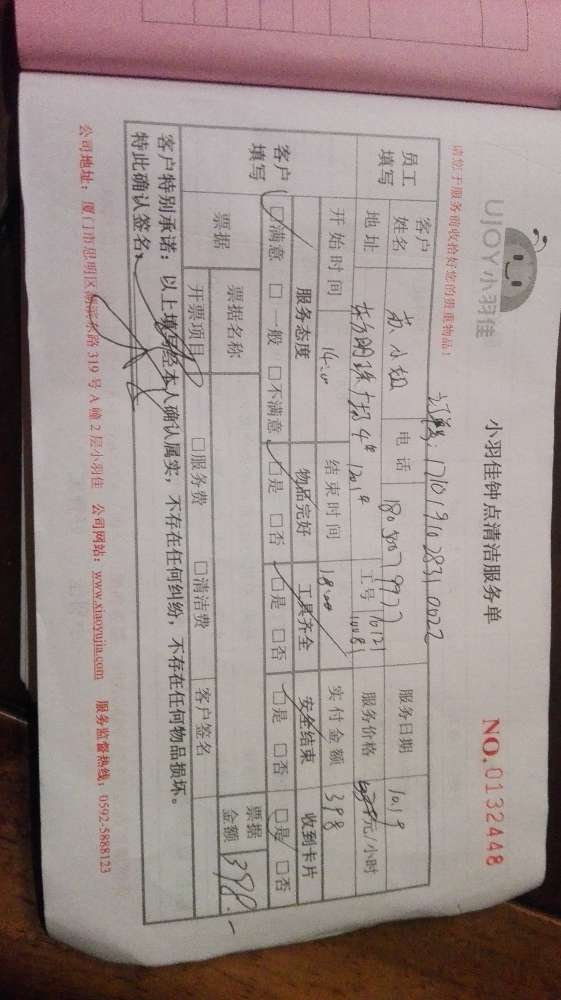 UJOY小羽佳
小羽佳钟点清洁服务单
NO.0132448
请您于服务前收拾好您的贵重物品！
员工填写 客户姓名 苏小姐 电话 服务日期 10.19
地址 工号 服务价格 元/小时
开始时间 14:00 结束时间 18:00 实付金额 398
客户填写 服务态度 物品完好 工具齐全 安全结束 收到卡片
□满意 □一般 □不满意 □是 □否 □是 □否 □是 □否 □是 □否
票据 票据名称 客户签名 票据金额 398.-
开票项目 □服务费 □清洁费
客户特别承诺：以上填写经本人确认属实，不存在任何纠纷，不存在任何物品损坏。
特此确认签名：
公司地址：厦门市思明区湖滨东路319号A幢2层小羽佳 公司网站：www.xiaoyujia.com 服务监督热线：0592-5888123